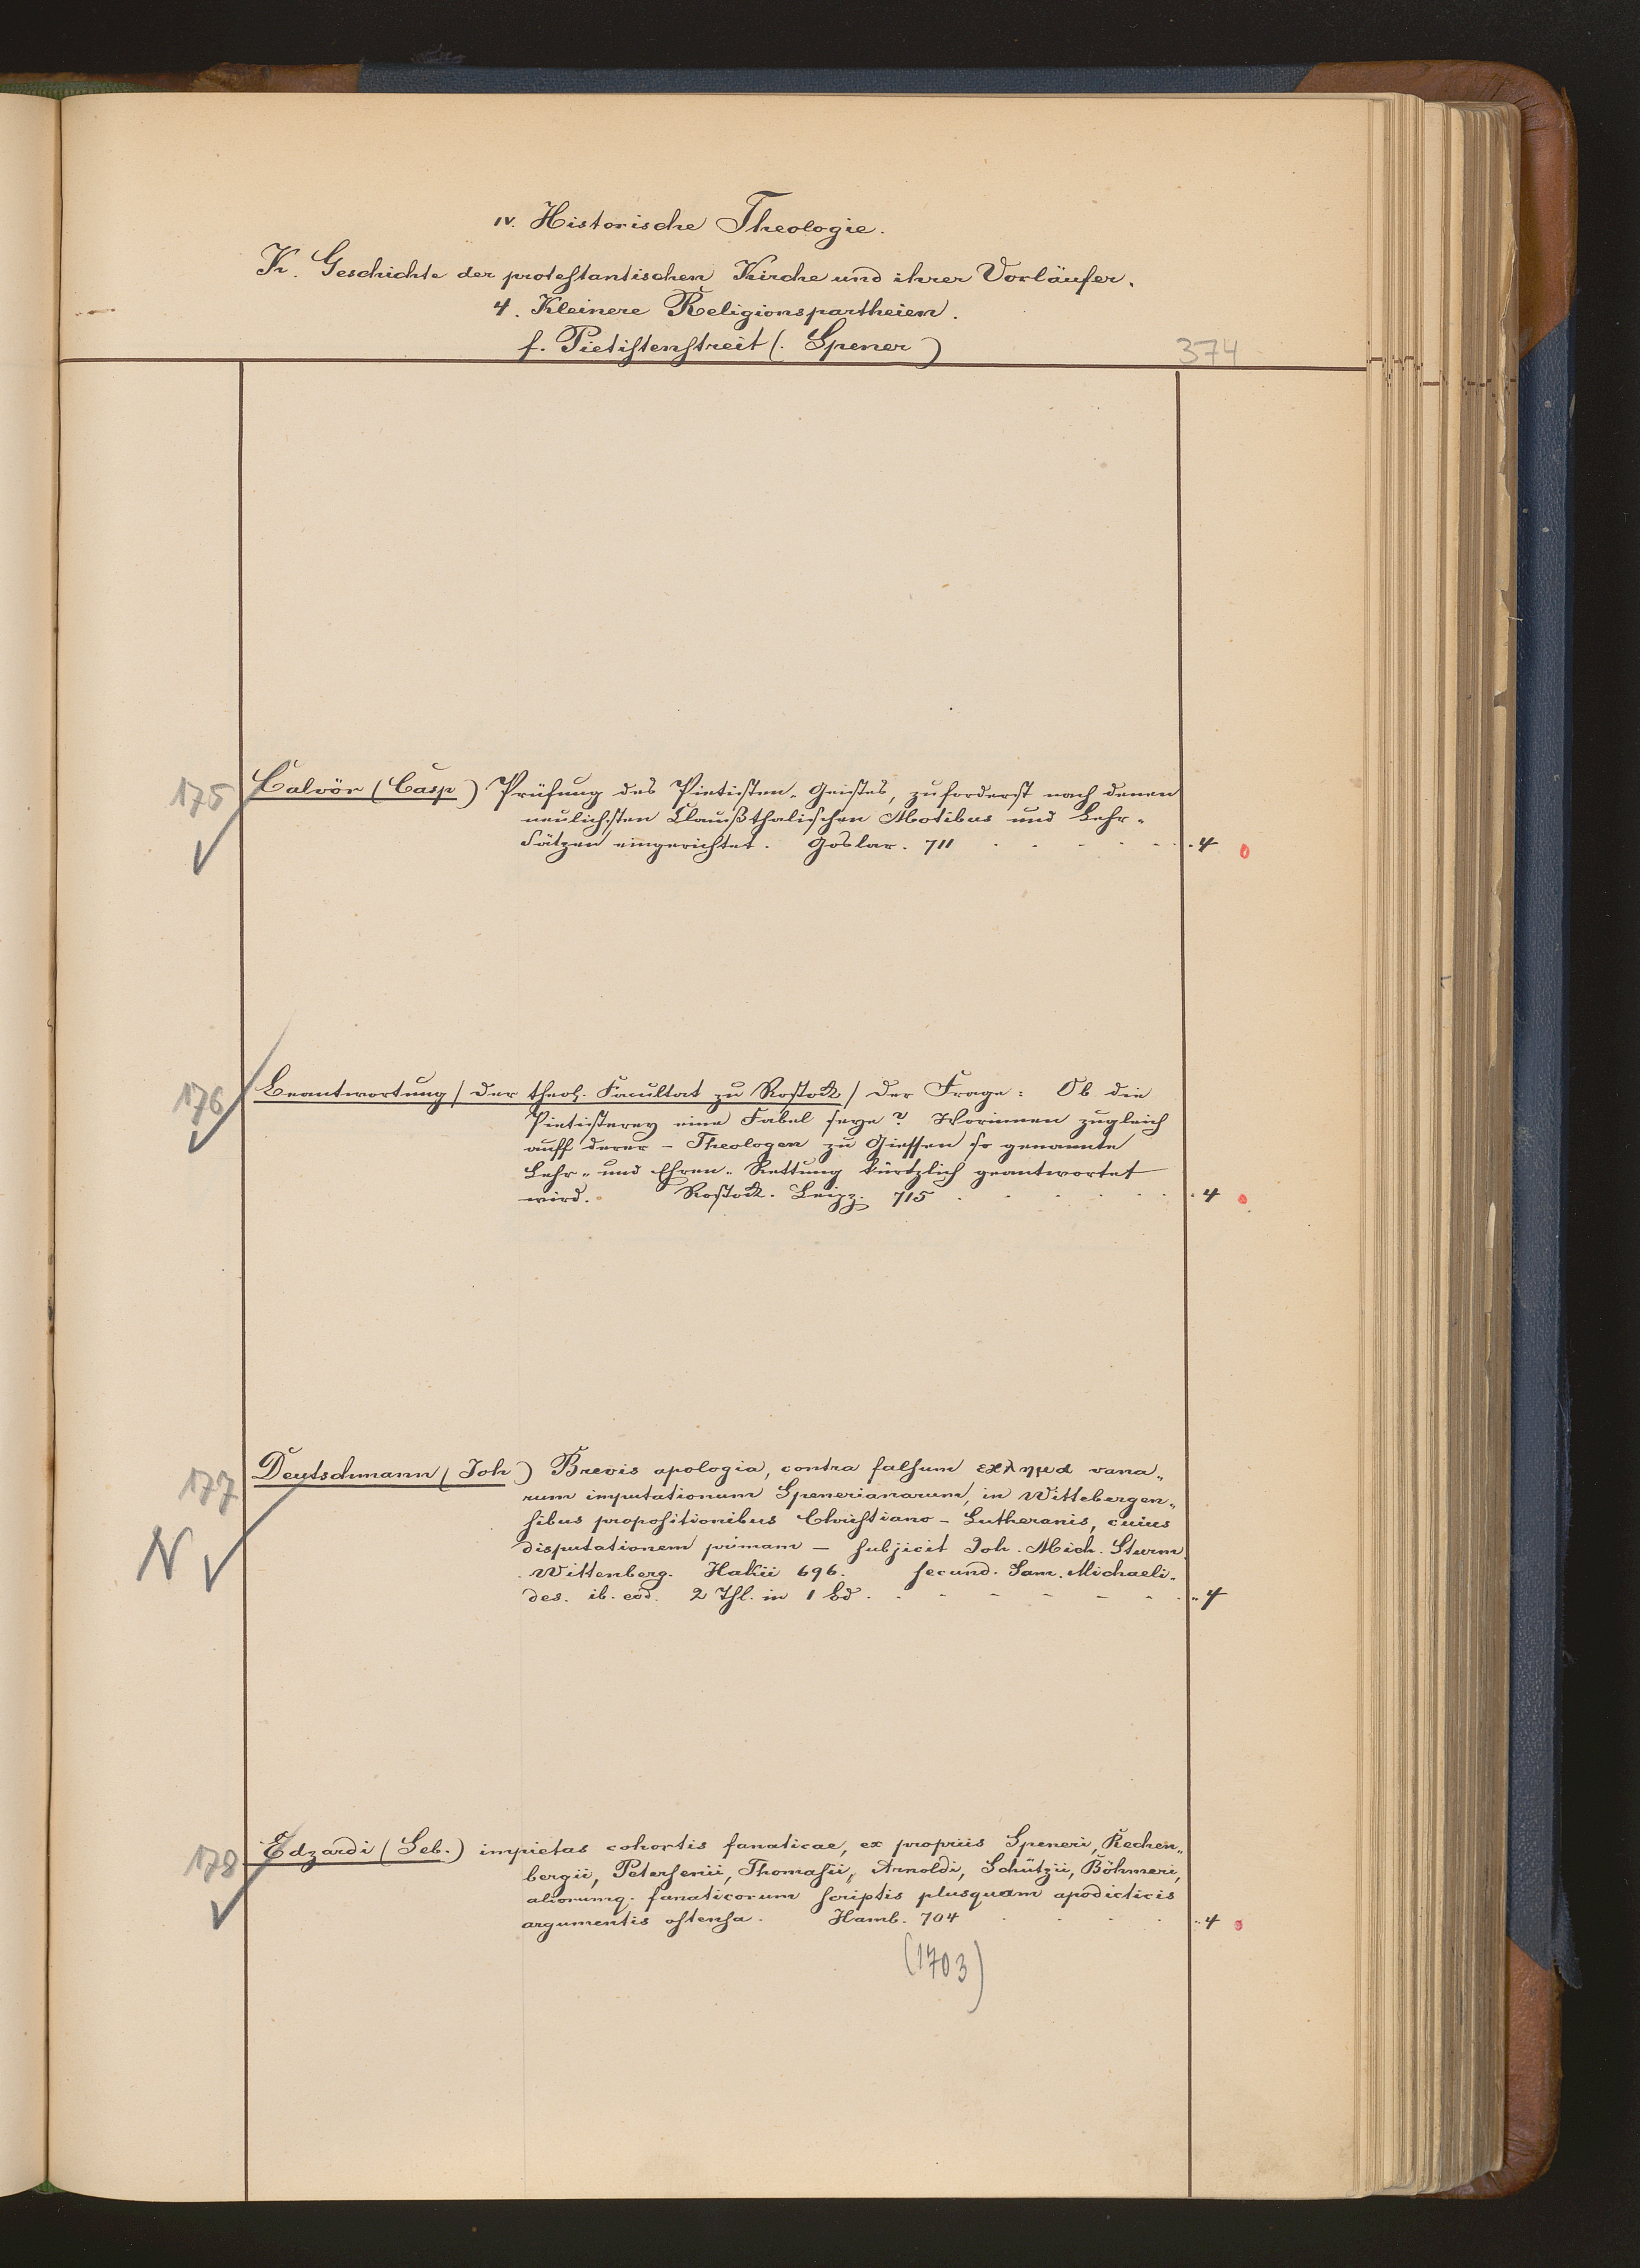 IV. Historische Theologie.
K. Geschichte der protestantischen Kirche und ihrer Vorläufer.
4. Kleinere Religionspartheien.
f. Pietistenstreit (. Spener)
374
175
Calvör (Casp) Prüfung des Pietisten-Geistes, zuforderst nach denen
neulichsten Claußthalischen Motibus und Lehr-
Sätzen eingerichtet. Goslar. 711 4
176
Beantwortung / der theol. Facultat zu Rostock / der Frage: Ob die
Pietisterey eine Fabel seye? Worinnen zugleich
auff derer - Theologen zu Giessen so genannte
Lehr- und Ehren-Rettung kürtzlich geantwortet
wird. Rostock. Leipz. 715 4
177
N
Deutschmann (Joh) Brevis apologia, contra falsum εκλημα vana-
rum imputationum Spenerianarum, in Wittebergen-
sibus propositionibus Christiano-Lutheranis, cuius
disputationem primam — subjicit Joh. Mich. Sturm.
Wittenberg. Hakii 696. secund. Sam. Michaeli-
des. ib. eod. 2 Thl. in 1 Bd. 4
178
Edzardi (Seb.) impietas cohortis fanaticae, ex propriis Speneri, Rechen-
bergii, Petersenii, Thomasii, Arnoldi, Schützii, Böhmeri,
aliorumq. fanaticorum scriptis plusquam apodicticis
argumentis ostensa. Hamb. 704 4
(1703)